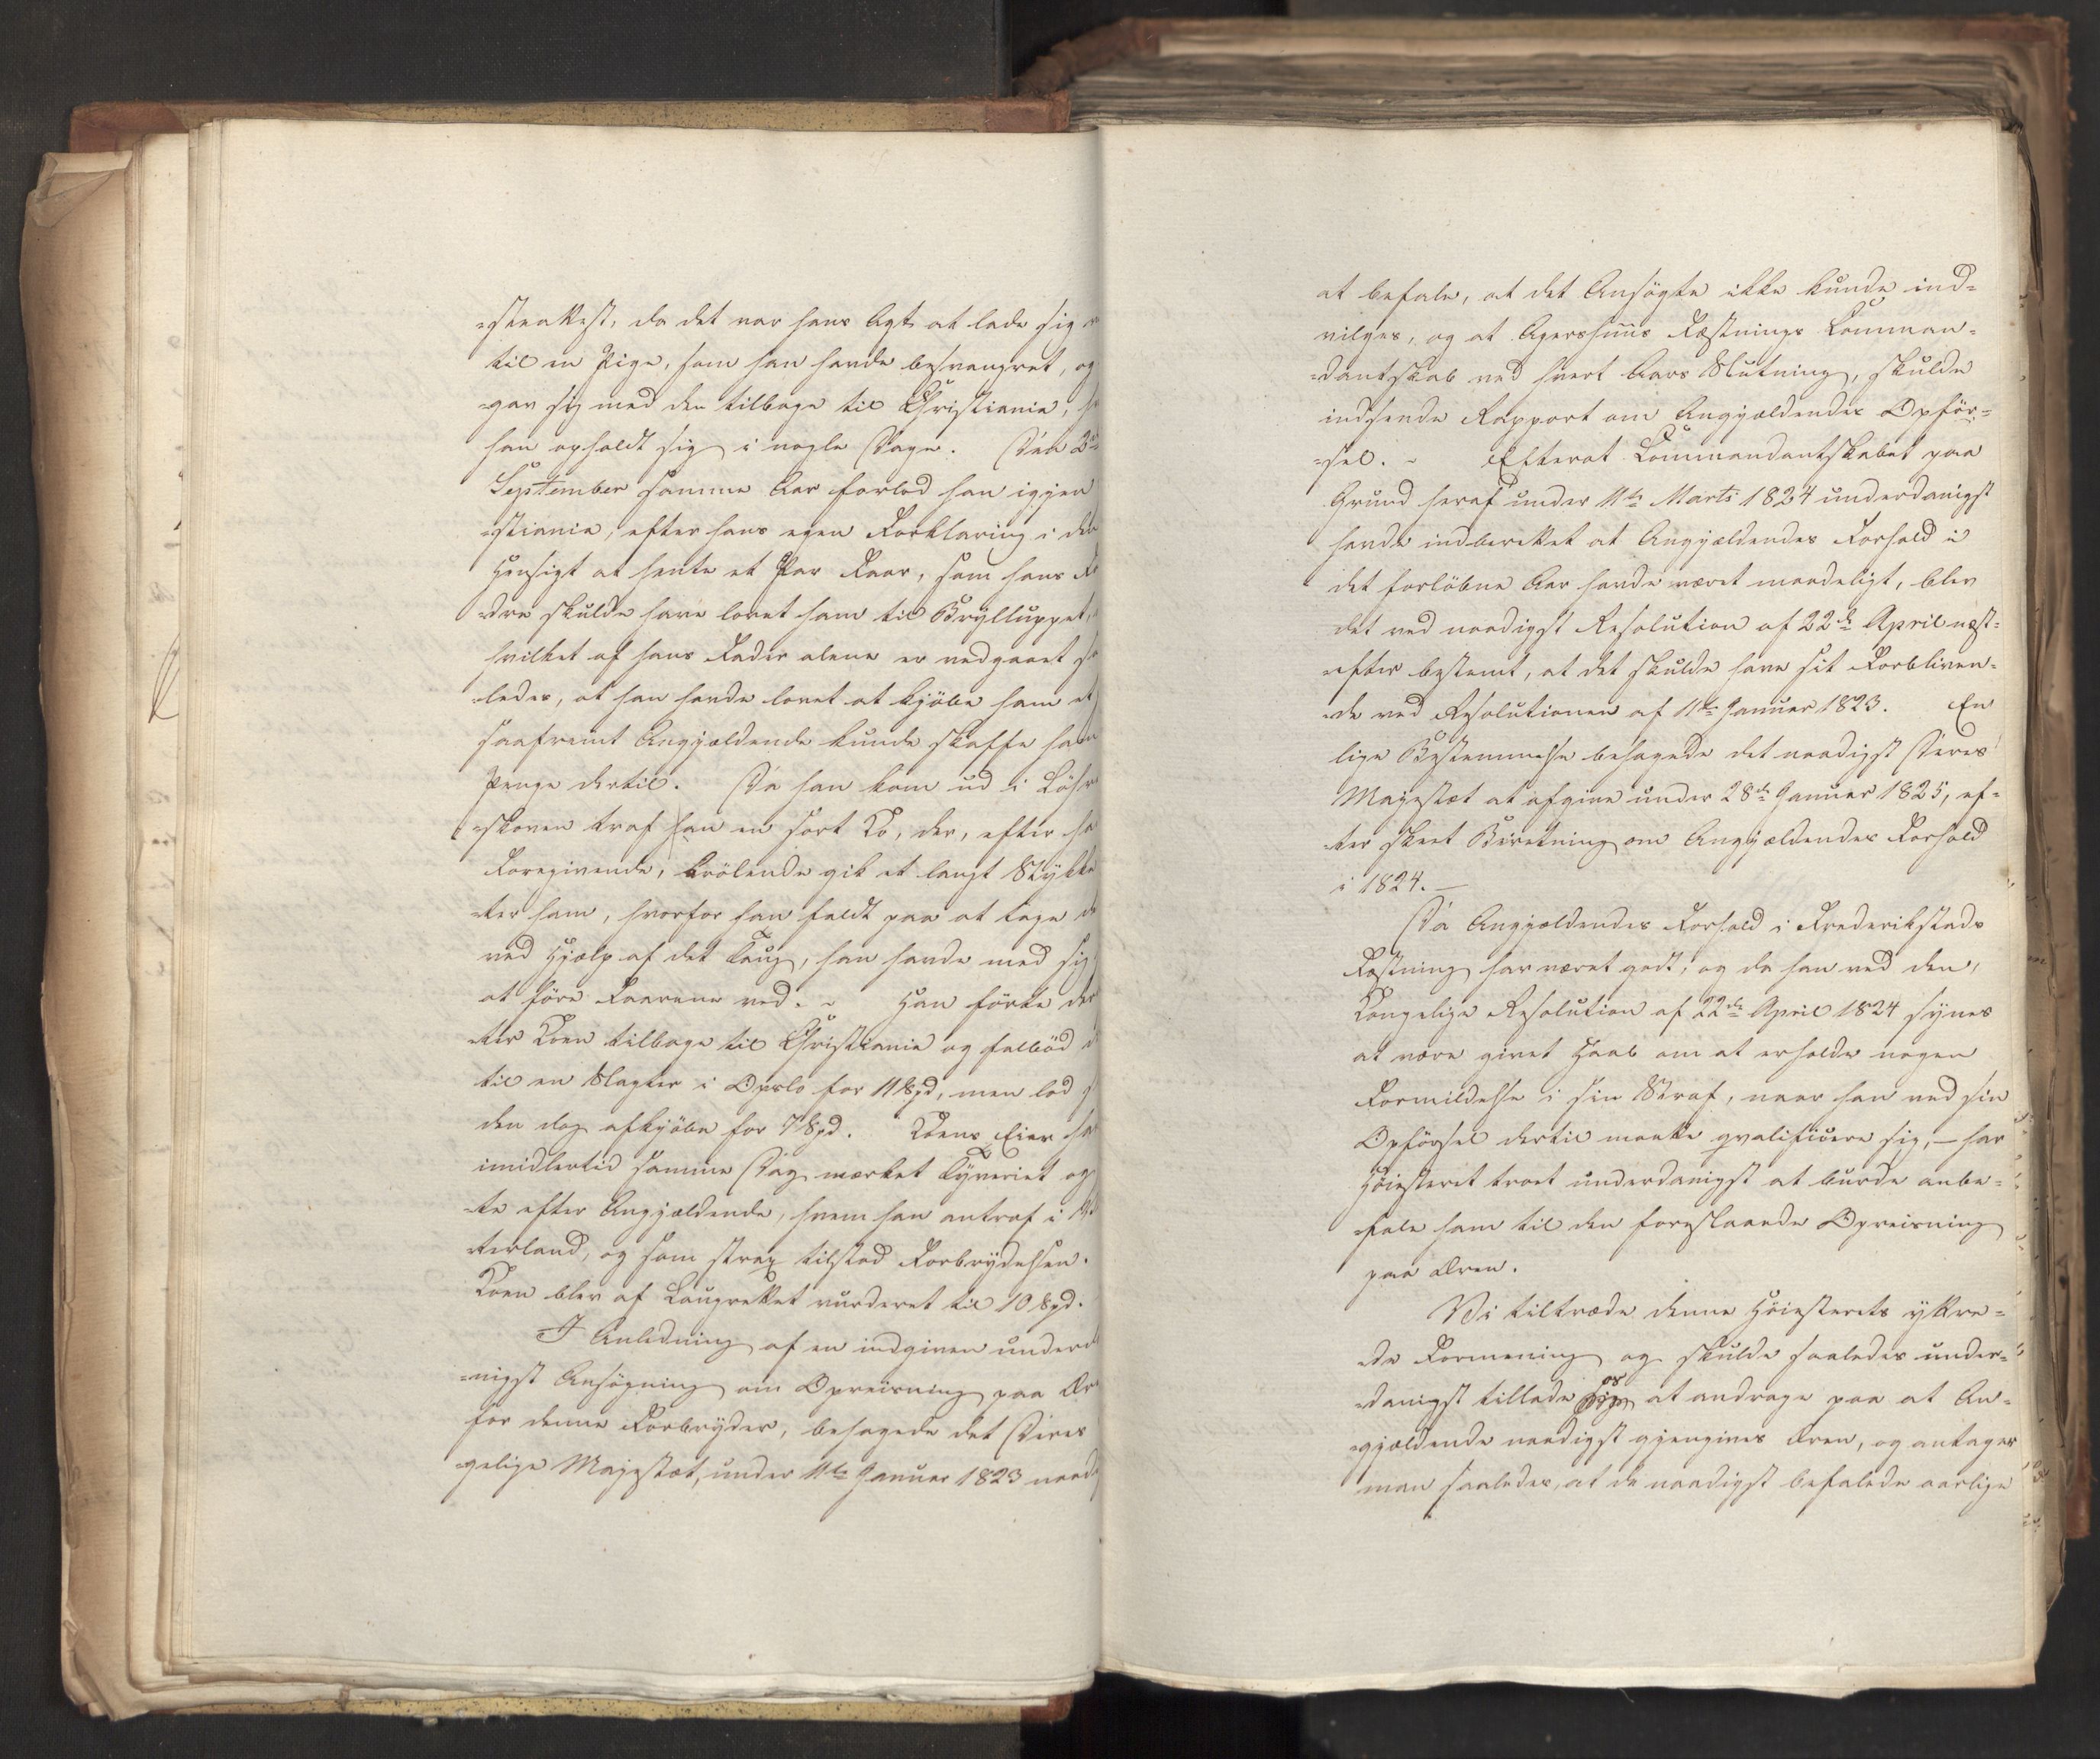 =straktest, da det var hans Agt at lade sig
til en Pige, som han havde besvangret, og
=gav sig med den tilbage til Christiania,
han opholdt sig i nogle Dage. Den 2den
September samme Aar forlod han igjen
=stiania, efter hans egen Forklaring i den
Hensigt at hente et Par Faar, som hans
=dre skulde have lovet ham til Brylluppet,
hvilket af hans Fader alene er vedgaaet
=ledes, at han havde lovet at kjöbe ham et
saafremt Angjældende kunde skaffe ham
Penge dertil. Da han kom ud i
=skoven traf han en sort Ko, der, efter
Foregivende, brölende gik et langt Stykke
=ter ham, hvorfor han faldt paa at tage
ved Hjælp af det Taug, han havde med sig
at före Faarene ved. - Han förte der
=ter Koen tilbage til Christiania og falböd
til en Slagter i Opslo for 11 Spd, men lod
den dog afkjöbe for 7 Spd. Koens Eier
imidlertid samme Dag mærket Tyveriet og
=te efter Angjældende, hvem han antraf i
=terland, og som strax tilstod Forbrydelsen.
Koen blev af Laugrettet vurderet til 10 Spd.
I Anledning af en indgiven under
=nigst Ansögning om Opreisning paa
for denne Forbryder, behagede det Deres
=gelige Majestæt, under 11te Januar 1823 naad
at befale, at det Ansögte ikke kunde ind=
vilges, og at Agershuus Fæstnings Comman=
=dantskab ved hvert Aars Slutning, skulde
indsende Rapport om Angjældendes Opför=
=sel. - Efterat Commandantskabet paa
Grund heraf under 11te Marts 1824 underdanigst
havde indberettet at Angjældendes Forhold i
det forlöbne Aar havde været maadeligt, blev
det ved naadigst Resolution af 22de April næst=
=efter bestemt, at det skulde have sit Forbliven=
=de ved Resolutionen af 11te Januar 1823. En
lige Bestemmelse behagede det naadigst Deres
Majestæt at afgive under 28de Januar 1825, ef=
=ter skeet Beretning om Angjældendes Forhold
i 1824. —
Da Angjældendes Forhold i Frederikstads
Fæstning har været godt, og da han ved den
Kongelige Resolution af 22de April 1824 synes
at være givet Haab om at erholde nogen
Formildelse i sin Straf, naar han ved sin
Opförsel dertil maatte qvalificere sig, — har
Höiesteret troet underdanigst at burde anbe=
=fale ham til den foreslaaede Opreisning
paa Æren.
Vi tiltræde denne Höiesterets yttre=
=de Formening og skulde saaledes under=
=danigst tillade os at andrage paa at An=
=gjældende naadigst gjengives Æren, og antager
man saaledes, at de naadigst befalede aarlige